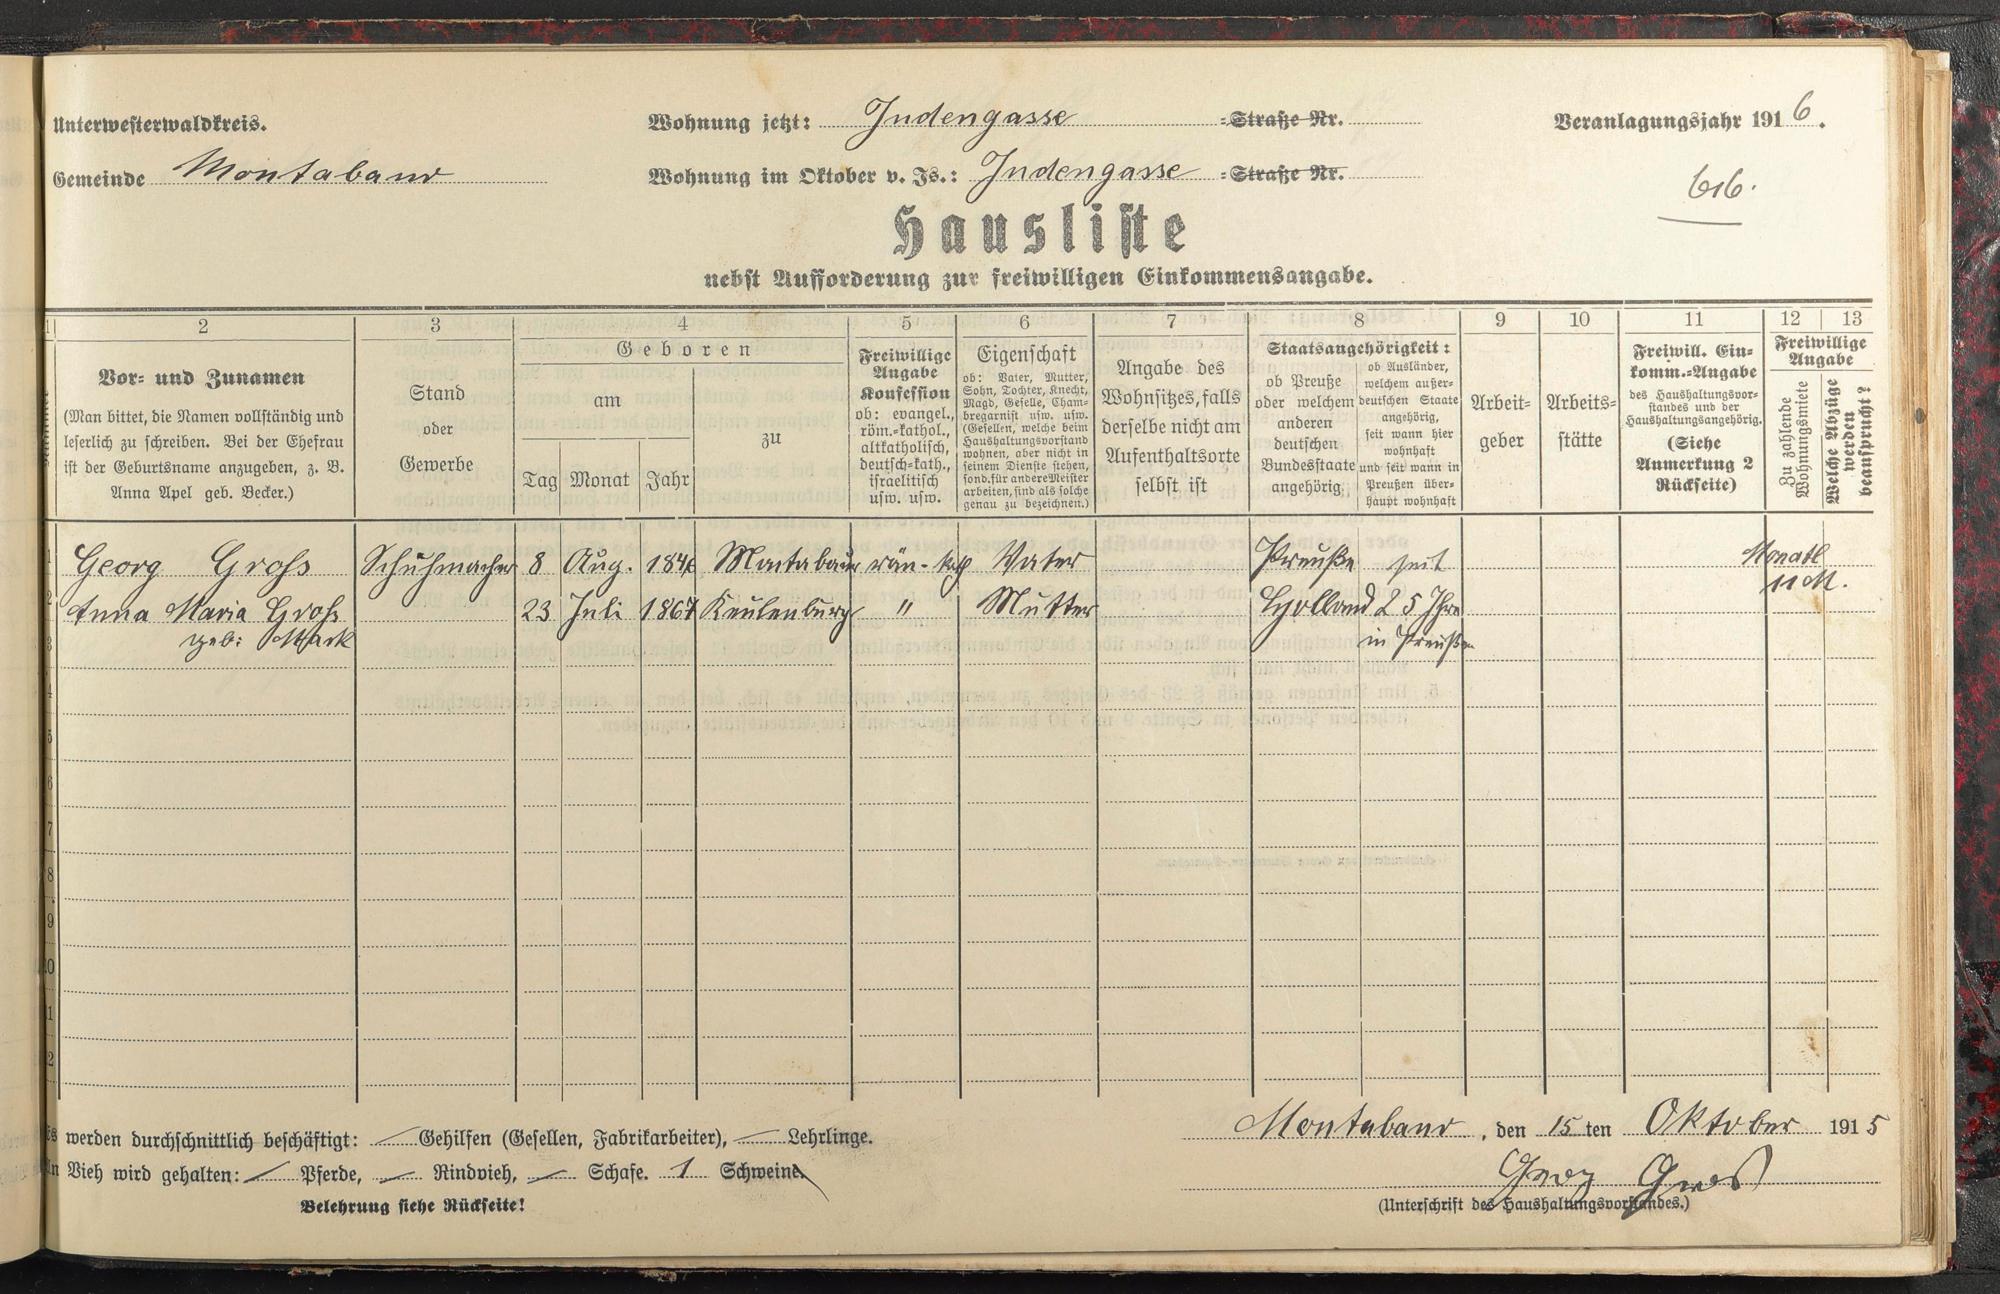 Unterwesterwaldkreis.
Wohnung jetzt: Judengasse =Straße Nr.
Veranlagungsjahr 1916.
Gemeinde Montabaur
Wohnung im Oktober v. Js.: Judengasse =Straße Nr.
616.
Hausliste
nebst Aufforderung zur freiwilligen Einkommensangabe.
1 2 3 4 5 6 7 8 9 10 11 12 13
Vor- und Zunamen
(Man bittet, die Namen vollständig und
leserlich zu schreiben. Bei der Ehefrau
ist der Geburtsname anzugeben, z. B.
Anna Apel geb. Becker.)
Stand
oder
Gewerbe
Geboren
am
zu
Tag Monat Jahr
Freiwillige
Angabe
Konfession
ob: evangel.,
röm.-kathol.,
altkatholisch,
deutsch-kath.,
israelitisch
usw. usw.
Eigenschaft
ob: Vater, Mutter,
Sohn, Tochter, Knecht,
Magd, Geselle, Cham-
bregarnist usw. usw.
(Gesellen, welche beim
Haushaltungsvorstand
wohnen, aber nicht in
seinem Dienste stehen,
sond. für andere Meister
arbeiten, sind als solche
genau zu bezeichnen.)
Angabe des
Wohnsitzes, falls
derselbe nicht am
Aufenthaltsorte
selbst ist
Staatsangehörigkeit:
ob Preuße
oder welchem
anderen
deutschen
Bundesstaate
angehörig
ob Ausländer,
welchem außer-
deutschen Staate
angehörig,
seit wann hier
wohnhaft
und seit wann in
Preußen über-
haupt wohnhaft
Arbeit-
geber
Arbeits-
stätte
Freiwill. Ein-
komm.-Angabe
des Haushaltungsvor-
standes und der
Haushaltungsangehörig.
(Siehe
Anmerkung 2
Rückseite)
Freiwillige
Angabe
Zu zahlende
Wohnungsmiete
Welche Abzüge
werden
beansprucht?
1 Georg Groß Schuhmacher 8 Aug. Montabaur Vater Preuße seit Monatl
11 M.
2 Anna Maria Groß 23 Juli 1867 Keulenburg " Mutter Holland 25 Jhre
3 geb: Mark in Preußen
4
5
6
7
8
9
10
11
12
Es werden durchschnittlich beschäftigt: — Gehilfen (Gesellen, Fabrikarbeiter), — Lehrlinge.
An Vieh wird gehalten: — Pferde, — Rindvieh, — Schafe. 1 Schweine.
Belehrung siehe Rückseite!
Montabaur, den 15ten Oktober 1915
Georg Gros
(Unterschrift des Haushaltungsvorstandes.)